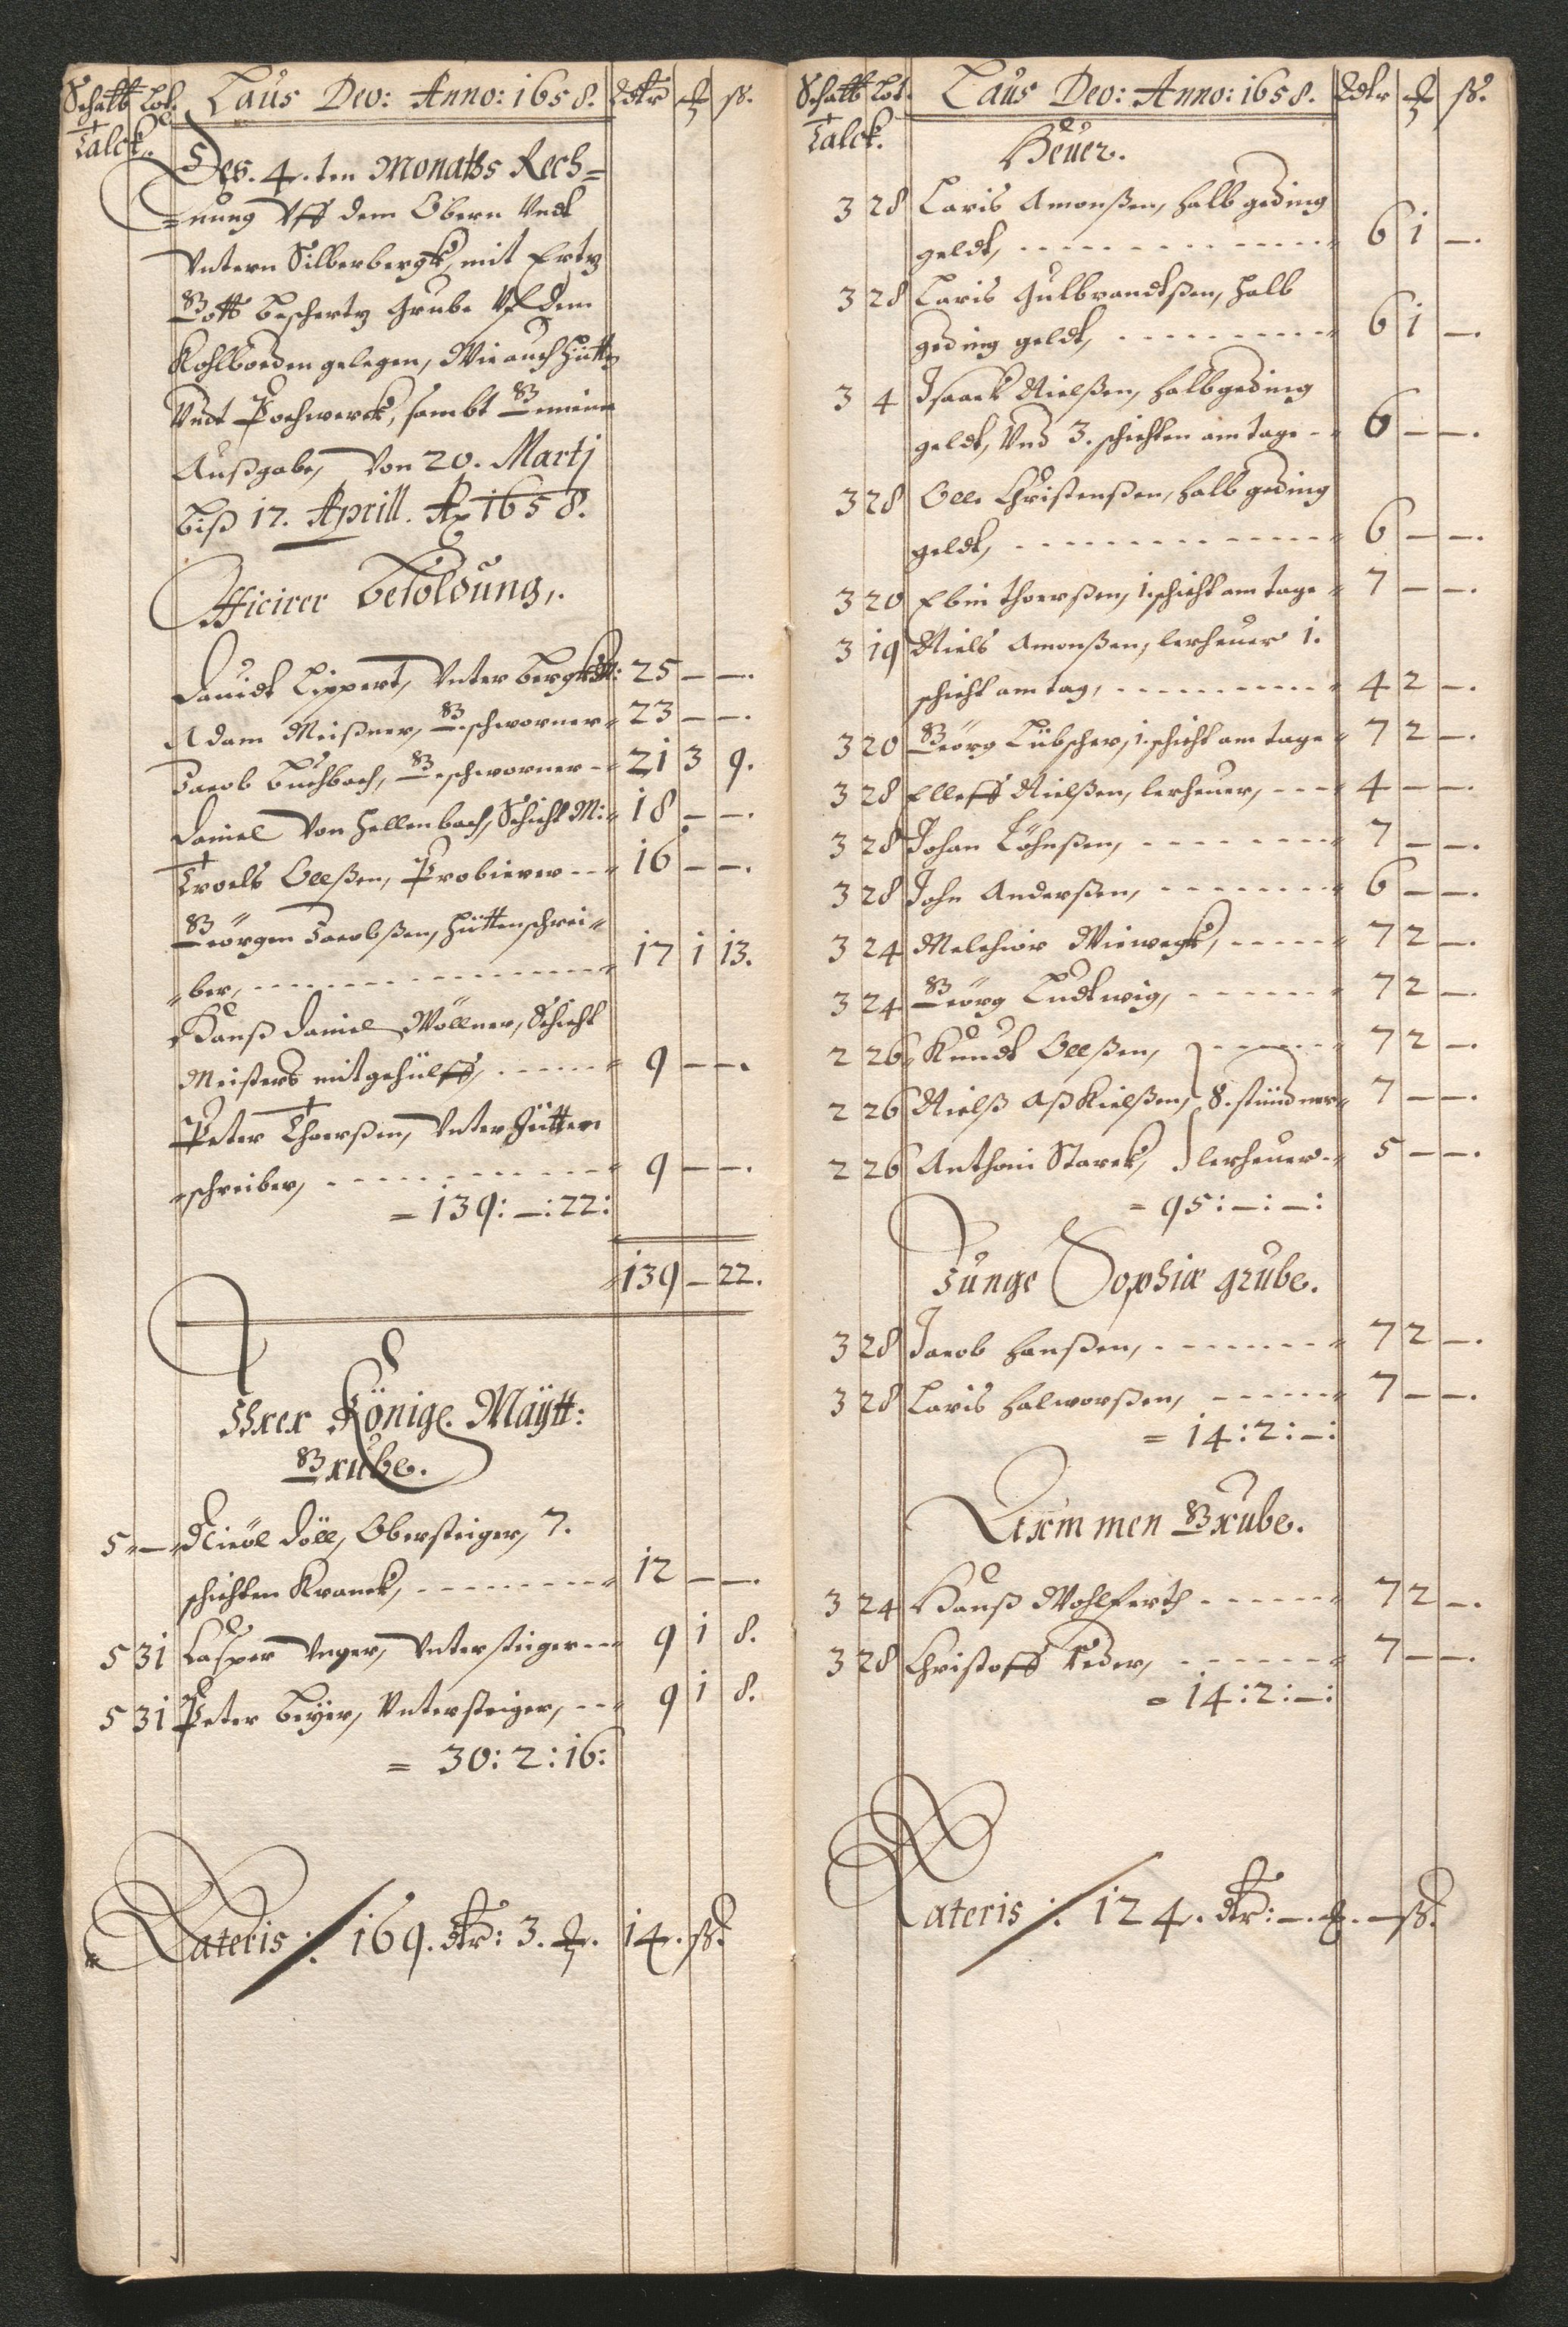 Schatt Lot. Laus Deo: Anno: 1658. Rdtr ß.
Talck.
Des. 4.ten Monaths Rech=
=nung Vff dem Obern Vndt
Vntern Silberbergk, mit Ertz
Gott bescherts Grube Vf dem
Kohlboeden gelegen, Wie auch Hütt
Vndt Pochwerck, sambt Gemeine
Außgabe, Von 20. Martj
biß 17. Aprill. Ao 1658.
Officirer besoldung,.
Dauidt Lippert, Vnter bergkM: 25 — —.
Adam Meißner, Geschworner 23 — —.
Jacob Buchbach, Geschworner - 21 3 9.
Daniel Von Hellenbach, Schicht M: 18 — —.
Troels Olleßen, Probierer - - 16 — —.
Geörgen Jacobßen, Hüttenschrei=
=ber, - - - 17 1 13.
Hanß Daniel Wöllner, Schicht
Meisters mitgehülff, - - - 9 — —.
Peter Thorßen, Vnter Hütten
=schreiber, - - - 9 — —.
= 139: —: 22:
139 — 22.
Ihrer Königl. Maÿtt:
Grube.
5 — Nicol Döll, Obersteiger, 7.
schichten Kranck, - - - 12 — —.
5 31 Casper Vnger, Vntersteiger - - 9 1 8.
5 31 Peter Beÿer, Vntersteiger, - - 9 1 8.
= 30: 2: 16:
Lateris ·/: 169. dtr: 3. 14. ß.
Schatt Lot. Laus Deo: Anno: 1658. Rdtr ß.
Talck.
Heuer.
3 28 Laris Amonßen, halb geding
geldt, - - - 6 1 —.
3 28 Laris Gulbrandtßen, halb
geding geldt, - - - 6 1 —.
3 4 Isaack Nielßen, halb geding
geldt, Vnd 3. schichten am tage - 6 — —.
3 28 Olle Christenßen, halb geding
geldt, - - - 6 — —.
3 20 Ebin Thorßen, 1. schicht am tage 7 — —.
3 19 Niels Amonßen, lerheuer 1.
schicht am tag, - - - 4 2 —.
3 20 Geörg Lübscher, 1. schicht am tage 7 2 —.
3 28 Elleff Nielßen, lerheuer, - - - 4 — —.
3 28 Johan Löhnßen, - - - 7 — —.
3 28 John Anderßen, - - - 6 — —.
3 24 Melchior Wiewegk, - - - 7 2 —.
3 24 Geörg Ludtwig, - - - 7 2 —.
2 26 Knudt Olleßen, - - - 7 2 —.
2 26 Nielß Aßkielßen, 8. stündner 7 — —.
2 26 Anthoni Starck, lerheuer - 5 — —.
= 95: —: —:
Junge Sophiæ grube.
3 28 Jacob Hanßen, - - - 7 2 —.
3 28 Laris Halworßen, - - - 7 — —.
= 14: 2: —:
Armmen Grube.
3 24 Hanß Wohlferth - - - 7 2 —.
3 28 Christoff Feder, - - - 7 — —.
= 14: 2: —:
Lateris ·/: 124. dtr: —. —ß.